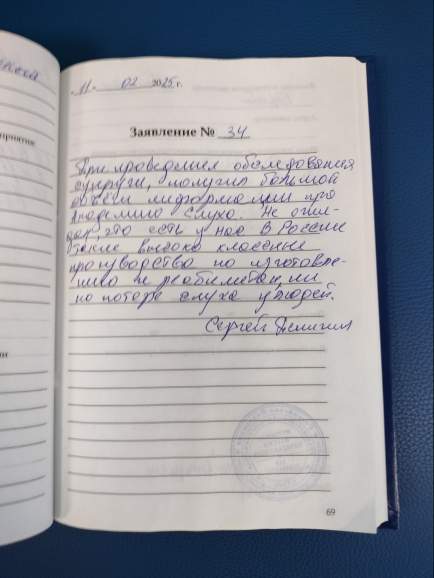 11. 02 2025 г.
Заявление № 34
При проведении обследования
супруги, получил большой
объем информации про
Академию слуха. Не ожи-
дал, что есть у нас в России
такие высоко классные
производство по изготовле-
нию и реабилитации
по потере слуха у людей.
Сергей
69